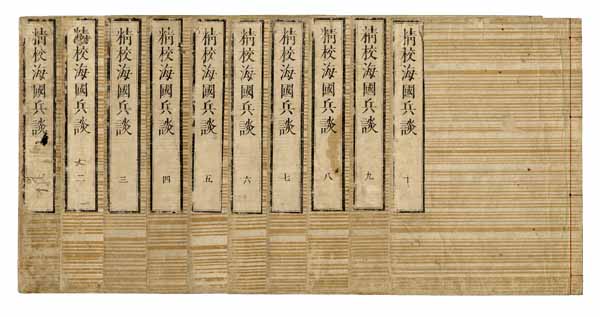 精校海國兵談
精校海國兵談 二
精校海國兵談 三
精校海國兵談 四
精校海國兵談 五
精校海國兵談 六
精校海國兵談 七
精校海國兵談 八
精校海國兵談 九
精校海國兵談 十